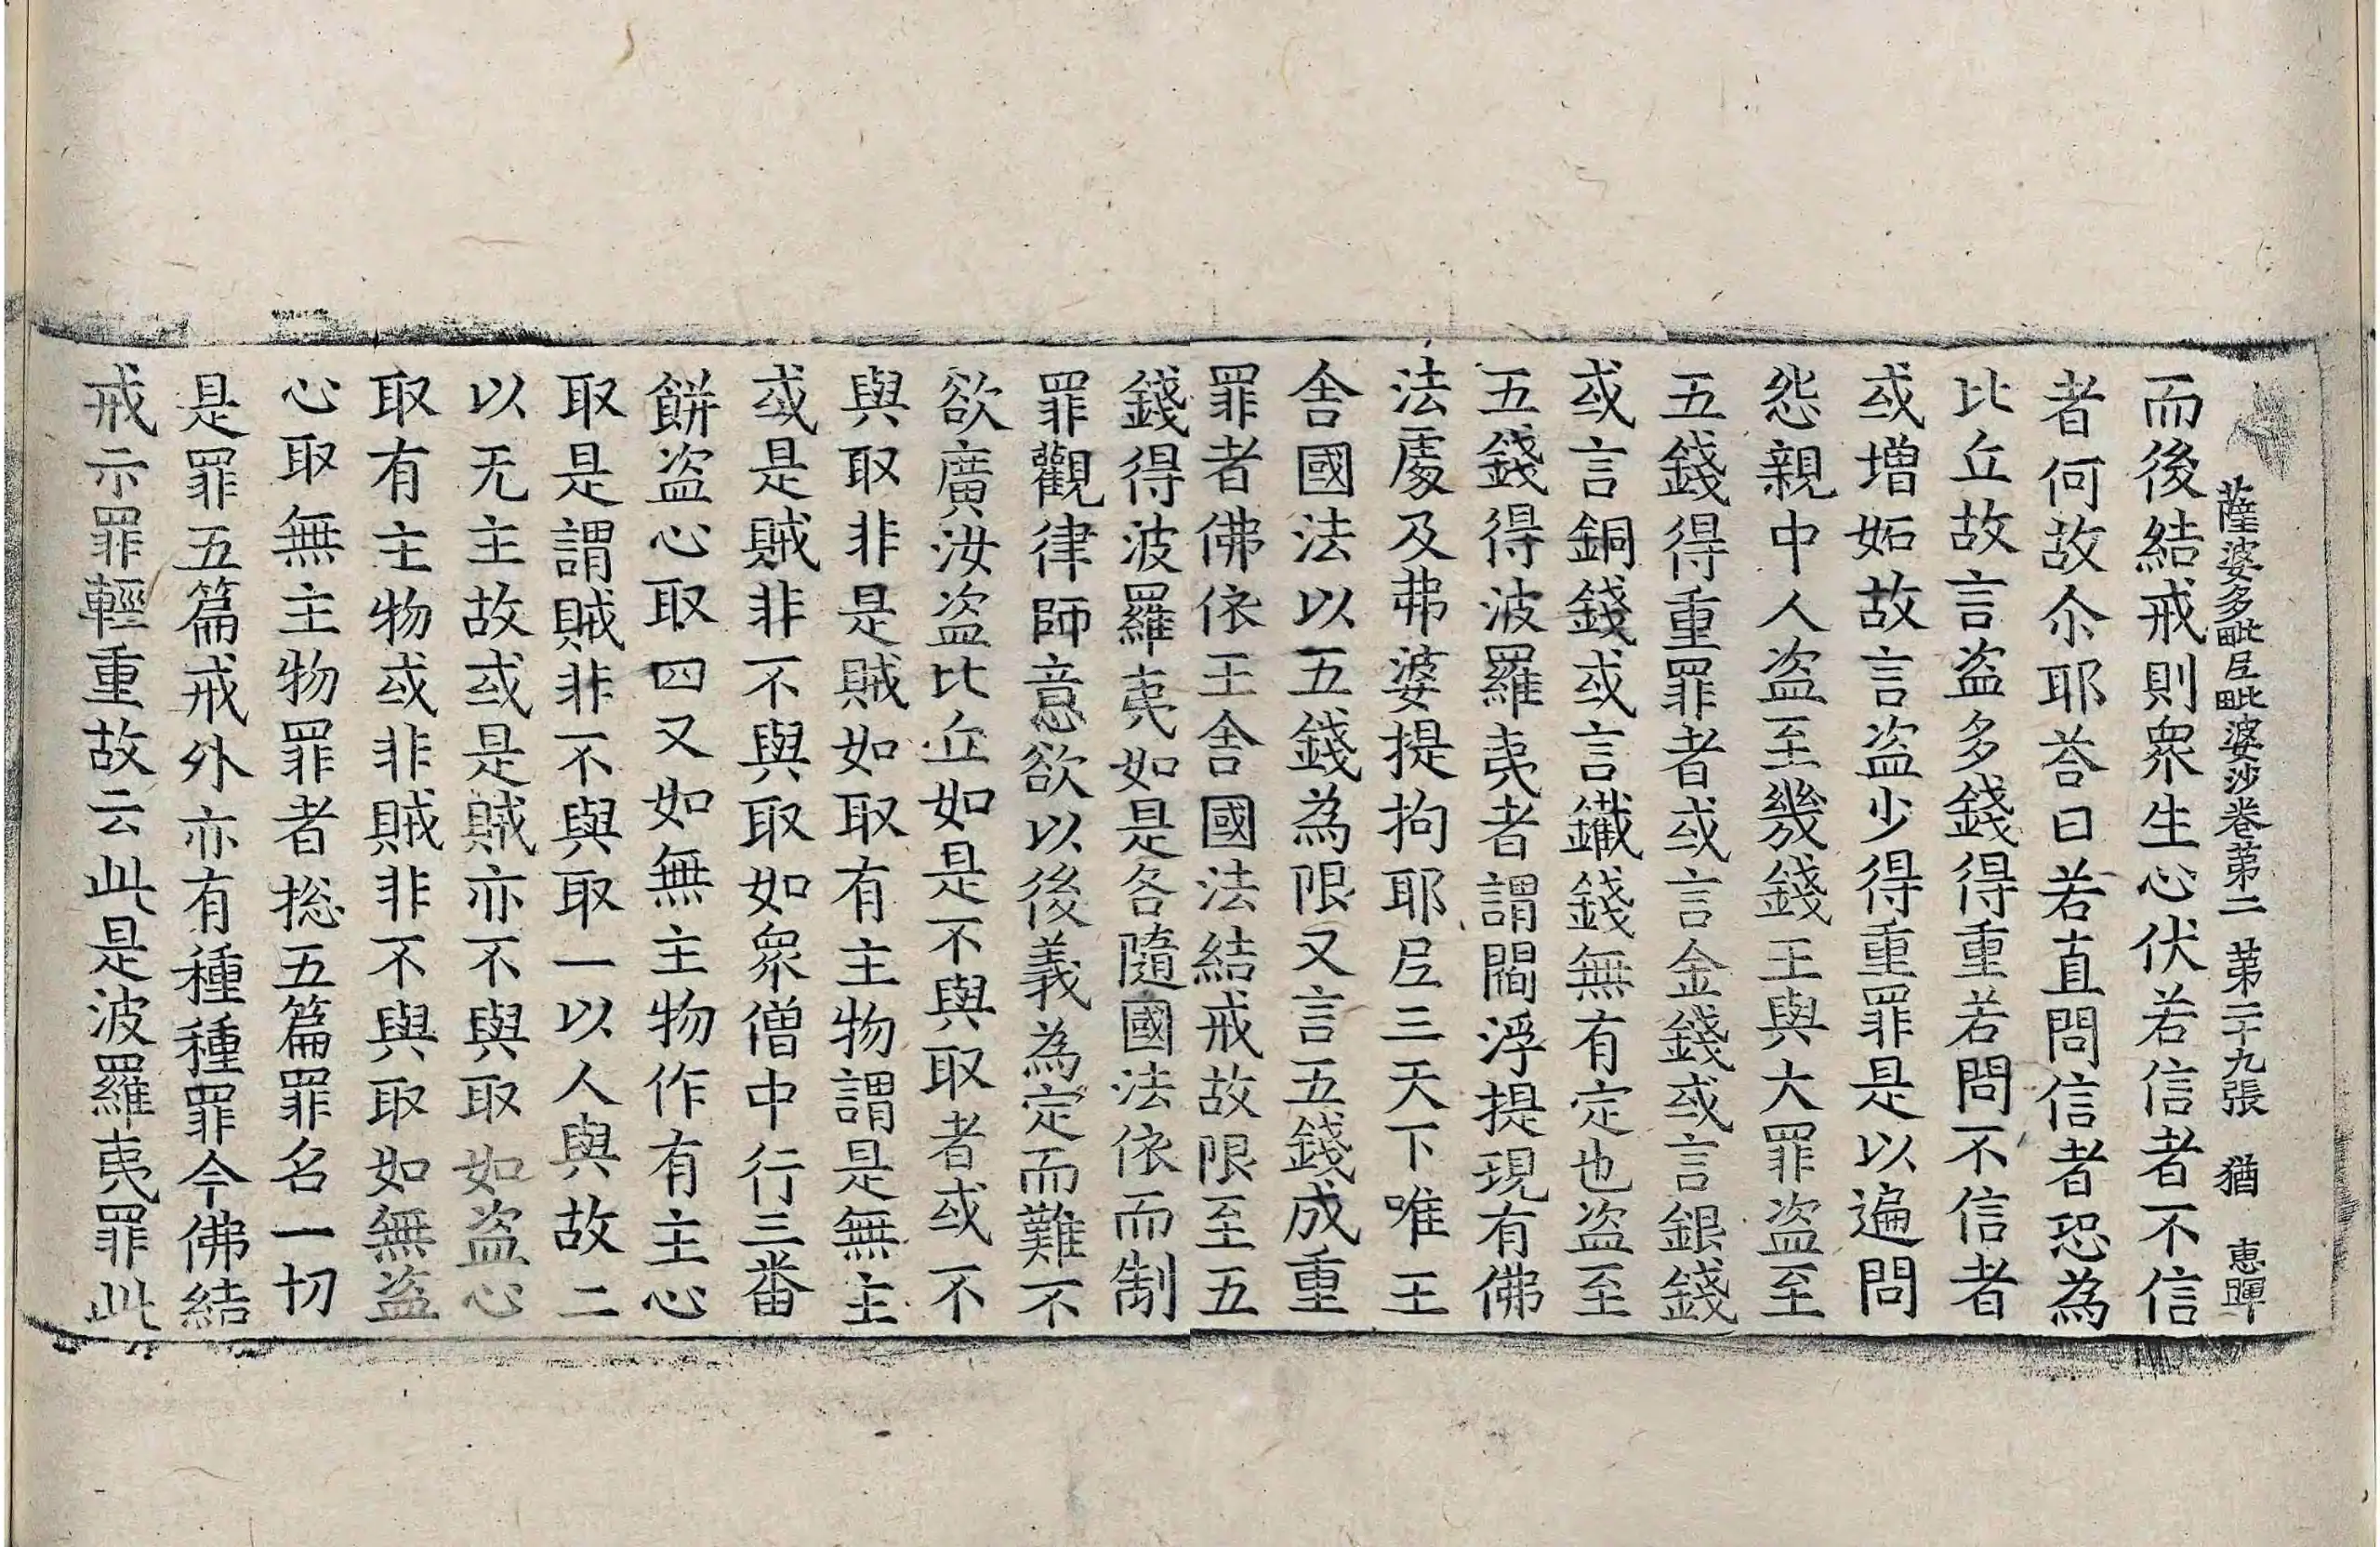 薩婆多毗尼毗婆沙卷苐二 苐二十九張 猶 惠暉
而後結戒則衆生心伏若信者不信
者何故尒耶荅曰若直問信者恐為
比丘故言盗多錢得重若問不信者
或增妬故言盗少得重罪是以遍問
怨親中人盗至幾錢王與大罪盗至
五錢得重罪者或言金錢或言銀錢
或言銅錢或言鐵錢無有定也盗至
五錢得波羅夷者謂閻浮提現有佛
法處及弗婆提拘耶尼三天下唯王
舍國法以五錢為限又言五錢成重
罪者佛依王舍國法結戒故限至五
錢得波羅夷如是各隨國法依而制
罪觀律師意欲以後義為定而難不
欲廣汝盗比丘如是不與取者或不
與取非是賊如取有主物謂是無主
或是賊非不與取如衆僧中行三番
餅盗心取四又如無主物作有主心
取是謂賊非不與取一以人與故二
以无主故或是賊亦不與取如盗心
取有主物或非賊非不與取如無盗
心取無主物罪者捴五篇罪名一切
是罪五篇戒外亦有種種罪今佛結
戒示罪輕重故云此是波羅夷罪此